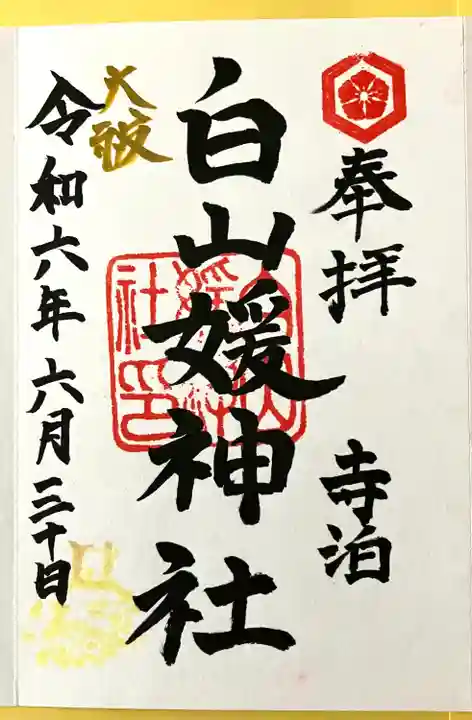 奉拝
寺泊
白山媛神社
大祓
令和六年六月三十日